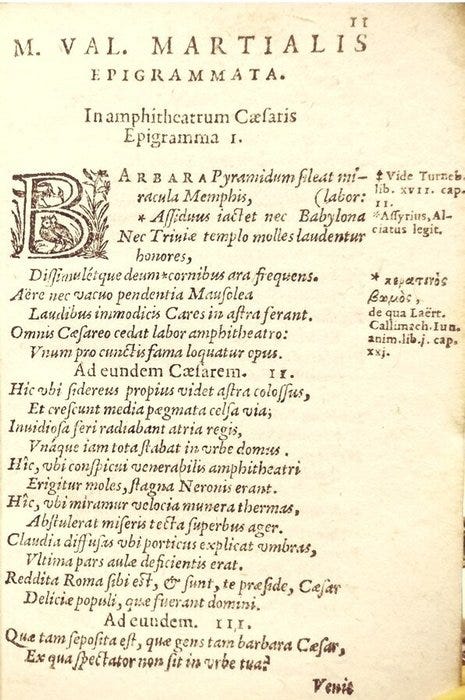 II
M. VAL. MARTIALIS
EPIGRAMMATA.
In amphitheatrum Cæsaris
Epigramma I.
BARBARA Pyramidum sileat mi-
racula Memphis, (labor:
* Assiduus iactet nec Babylona
Nec Triuiæ templo molles laudentur
honores,
Dissimulétque deum *cornibus ara frequens.
Aëre nec vacuo pendentia Mausolea
Laudibus immodicis Cares in astra ferant.
Omnis Cæsareo cedat labor amphitheatro:
Vnum pro cunctis fama loquatur opus.
Ad eundem Cæsarem. II.
Hic vbi sidereus propius videt astra colossus,
Et crescunt media pægmata celsa via;
Inuidiosa feri radiabant atria regis,
Vnáque iam tota stabat in vrbe domus.
Hîc, vbi conspicui venerabilis amphitheatri
Erigitur moles, stagna Neronis erant.
Hîc, vbi miramur velocia munera thermas,
Abstulerat miseris tecta superbus ager.
Claudia diffusas vbi porticus explicat vmbras,
Vltima pars aulæ deficientis erat.
Reddita Roma sibi est, & sunt, te præside, Cæsar
Deliciæ populi, quæ fuerant domini.
Ad eundem. III.
Quæ tam seposita est, quæ gens tam barbara Cæsar,
Ex qua spectator non sit in vrbe tua?
Venit
Vide Turneb.
lib. XVII. cap.
II.
*Assyrius, Al-
ciatus legit.
* κερατινὸς
βωμὸς,
de qua Laërt.
Callimach. Iun.
anim. lib. j. cap.
xxj.